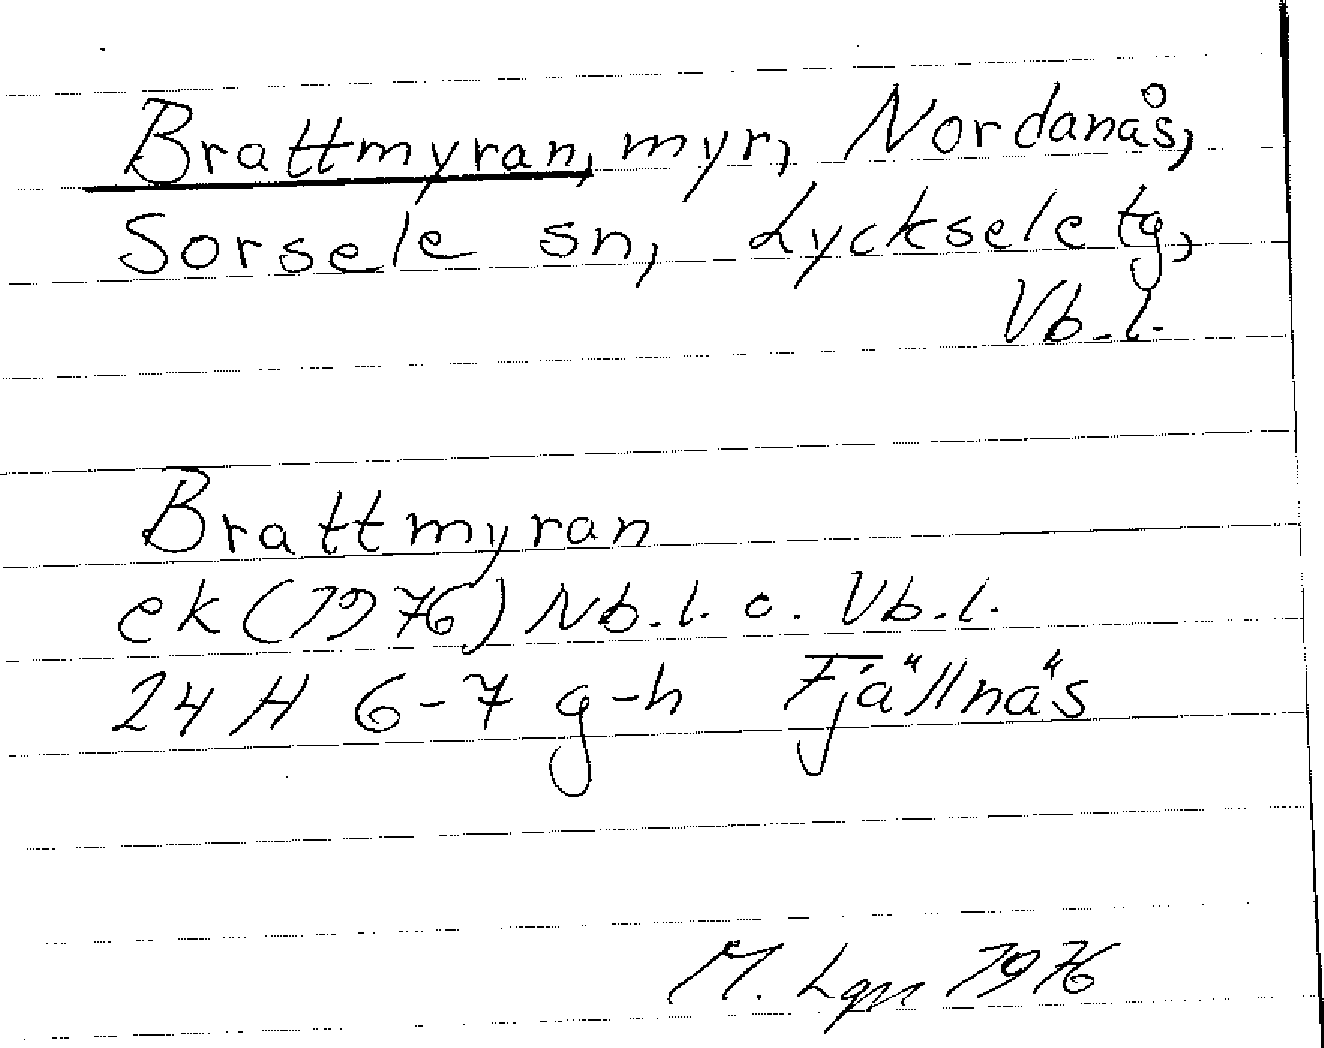 Brattmyran, myr, Nordanås,
Sorsele sn, Lycksele tg,
Vb.l.
Brattmyran
ek (1976) Nb.l. o. Vb.l.
24 H 6-7 g-h Fjällnäs
M. Lgn 1976